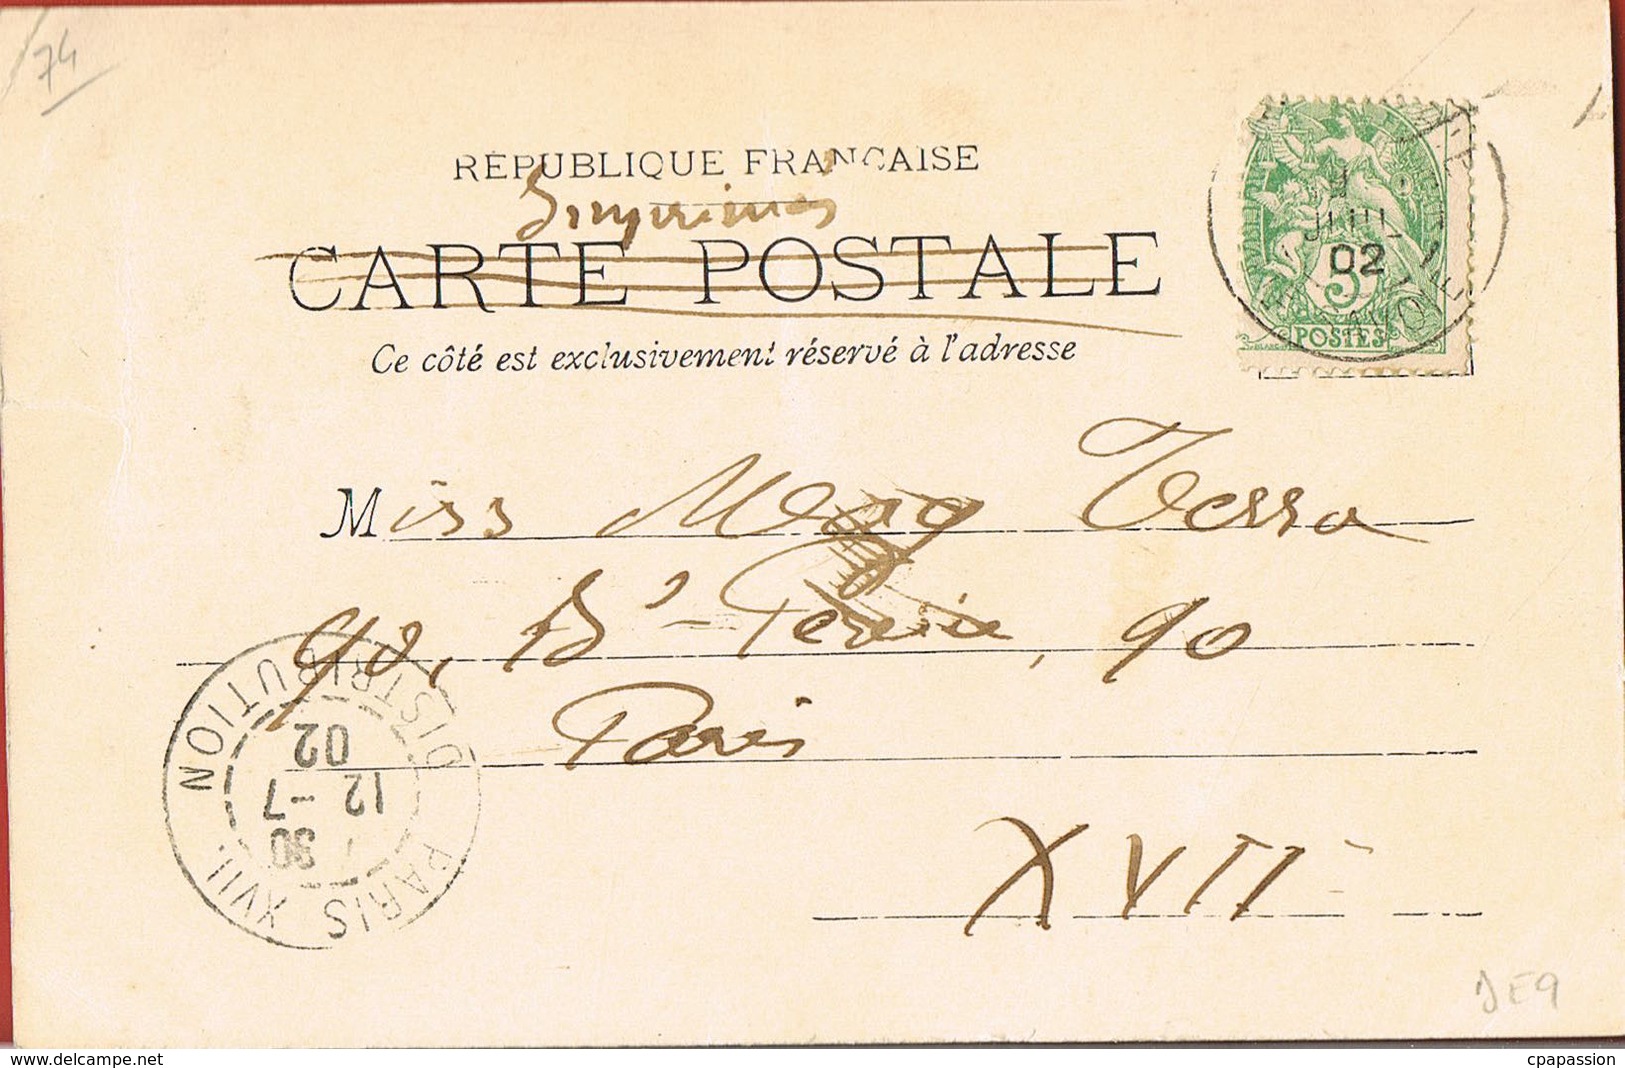 74
RÉPUBLIQUE FRANÇAISE
Imprimés
CARTE POSTALE
Ce côté est exclusivement réservé à l'adresse
JUIL
02
5
POSTES
Miss Mary Terra
90, Bd Pereire, 90
Paris
XVII
PARIS XVII. DISTRIBUTION
30
12 -7
02
JE9
www.delcampe.net
cpapassion